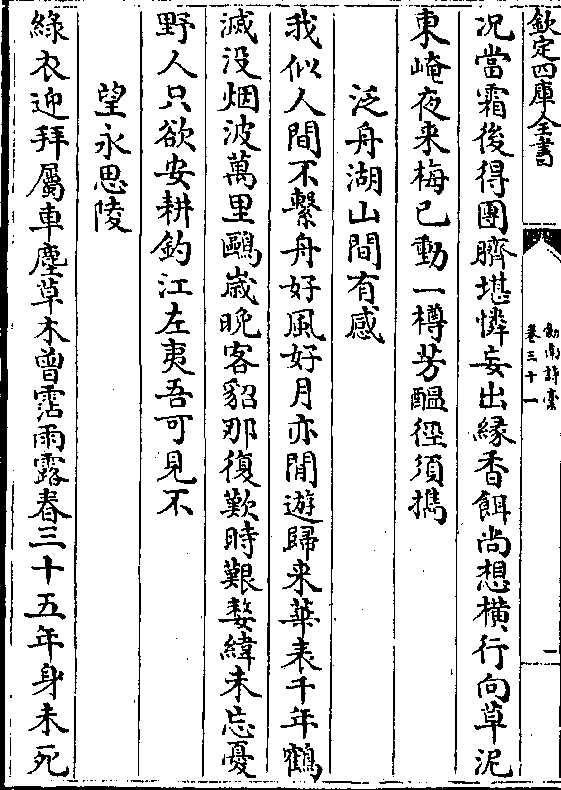 欽定四庫全書
劍南詩藁
卷三十一
一
況當霜後得團臍堪憐妄出緣香餌尚想横行向草泥
東崦夜来梅已動一樽芳醖徑須擕
泛舟湖山間有感
我似人間不繫舟好風好月亦閒遊歸来華表千年鶴
滅没烟波萬里鷗歳晚客貂那復歎時艱嫠緯未忘憂
野人只欲安耕釣江左夷吾可見不
望永思陵
綠衣迎拜屬車塵草木曽霑雨露春三十五年身未死